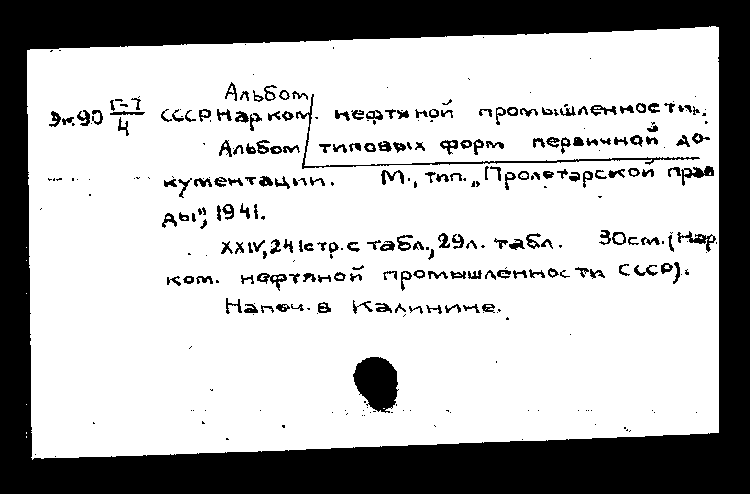 Альбом
Эк.90 Г-7/4 СССР. Нар.ком. нефтяной промышленности.
Альбом типовых форм первичной до-
кументации. М., тип. „Пролетарской прав
ды", 1941.
XXIV, 241стр. с табл., 29л. табл. 30см. (Нар.
ком. нефтяной промышленности СССР).
Напеч. в Калинине.